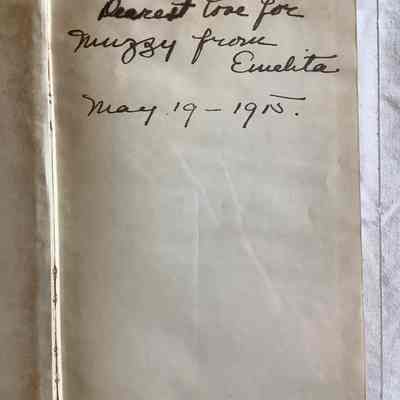 Dearest love for
Muzzy from
Emelita
May 19 - 1915.